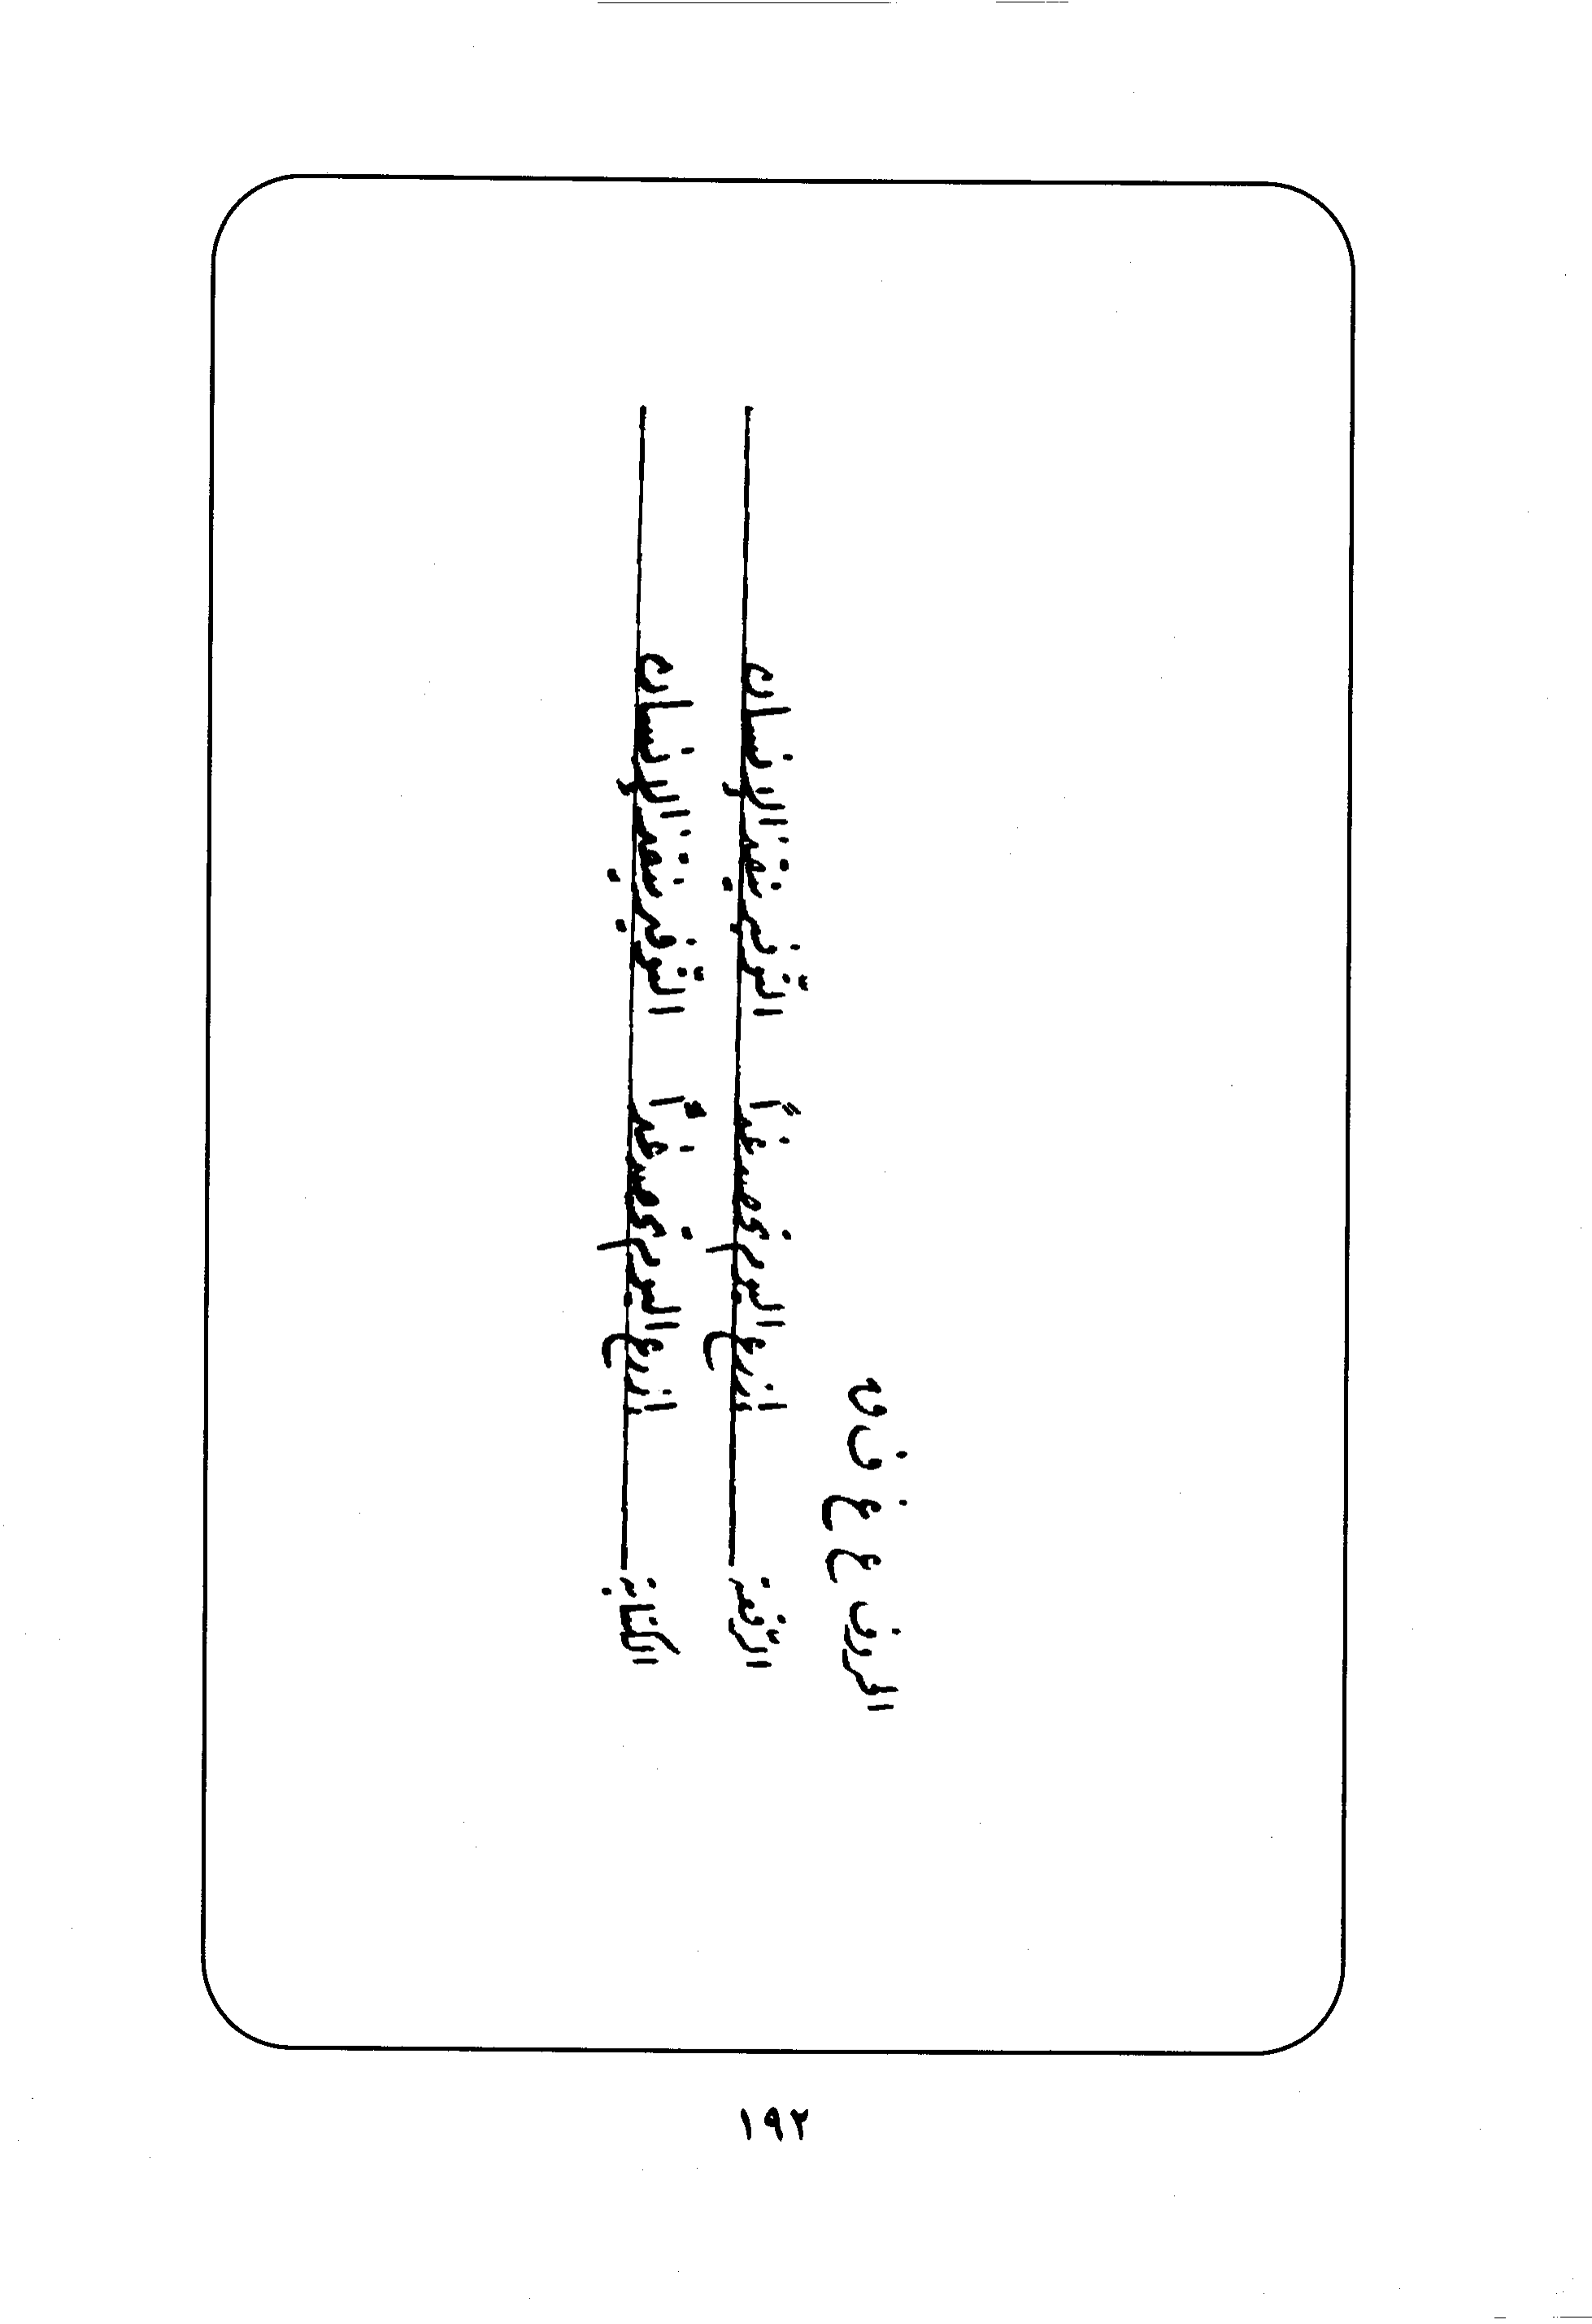 الحروف ع غ ف ق
الرّقعة إزرع اليوم تحصد غداً التّوفير ينقذ الإنسان
الكتابة إزرع اليوم تحصد غداً التّوفير ينقذ الإنسان
١٩٢